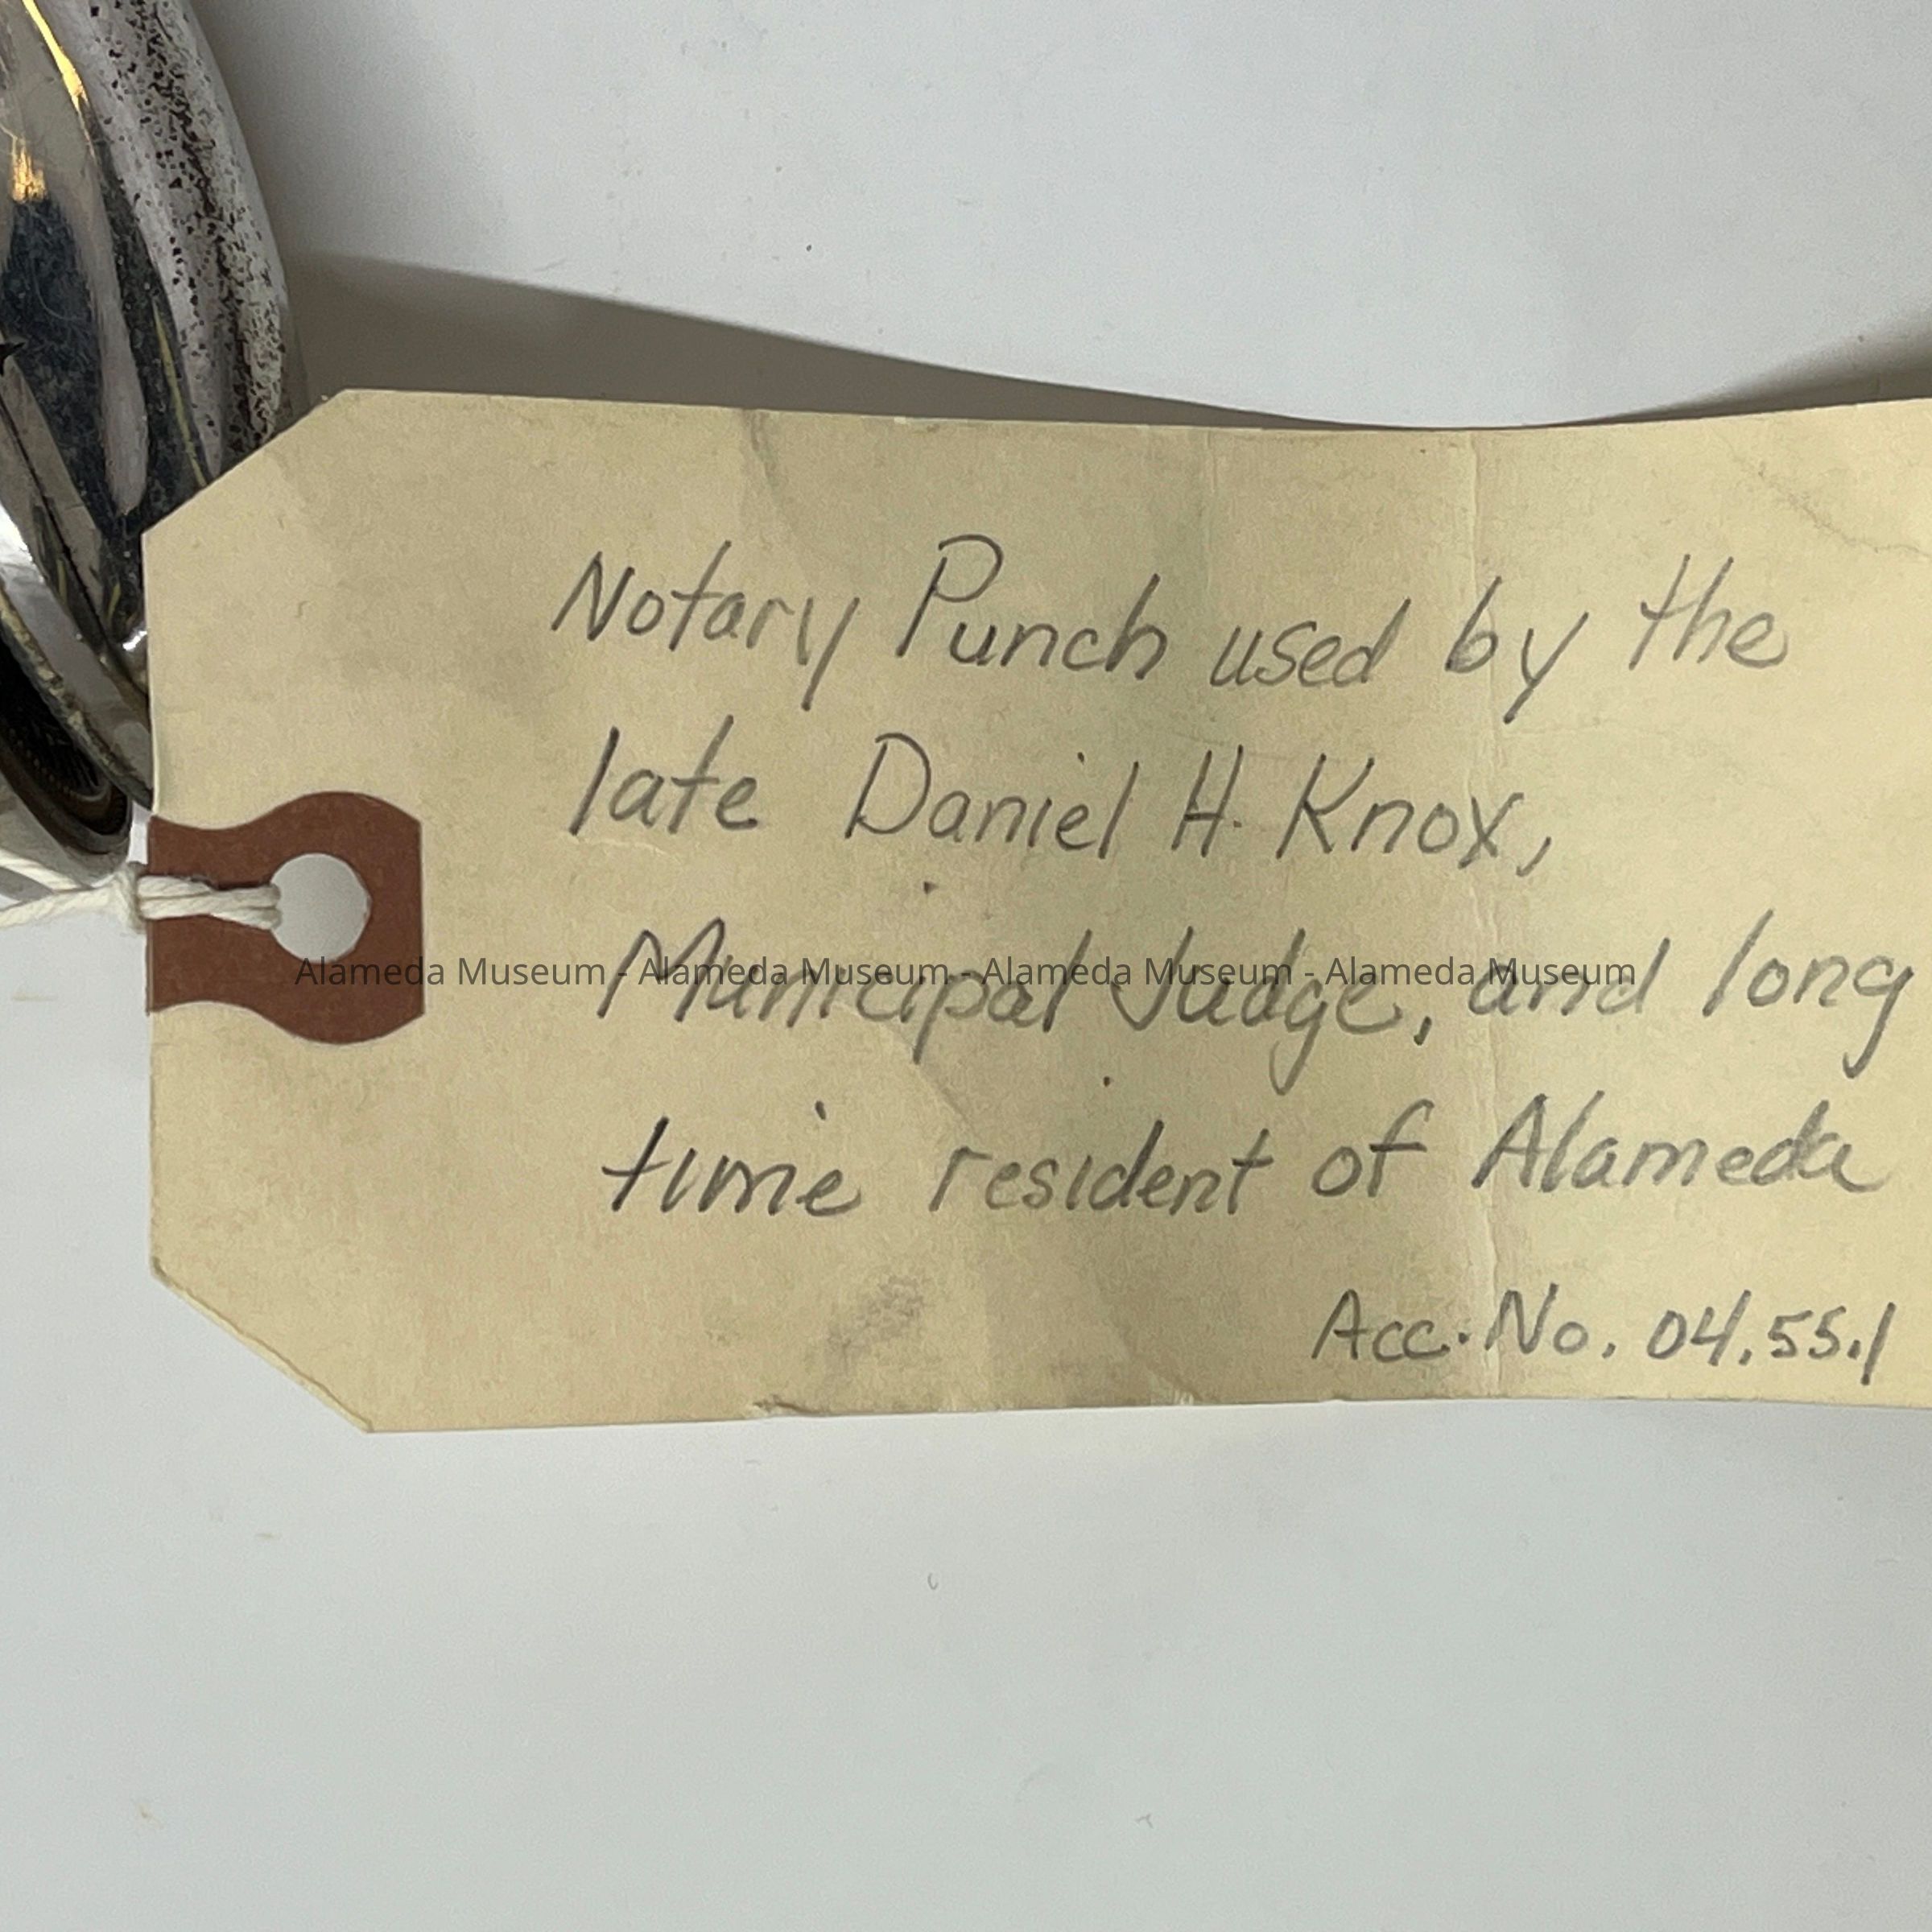 Notary Punch used by the
late Daniel H. Knox,
Municipal Judge, and long
time resident of Alameda
Acc. No. 04.55.1
Alameda Museum - Alameda Museum - Alameda Museum - Alameda Museum